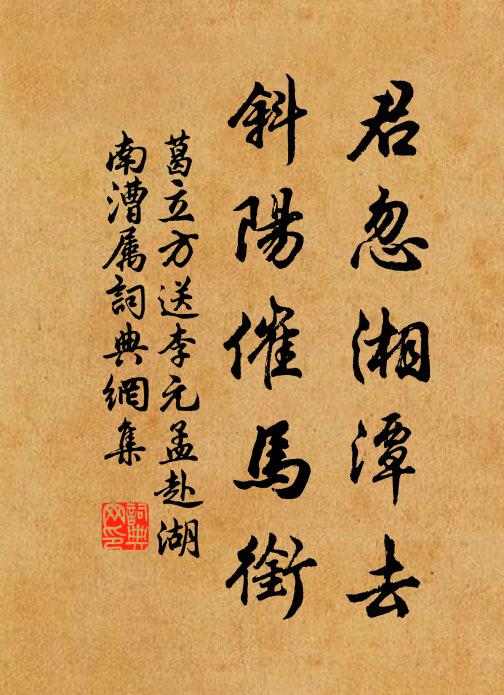 君忽湘潭去
斜陽催馬銜
葛立方送李元孟赴湖
南漕属詞典網集
詞典
网印